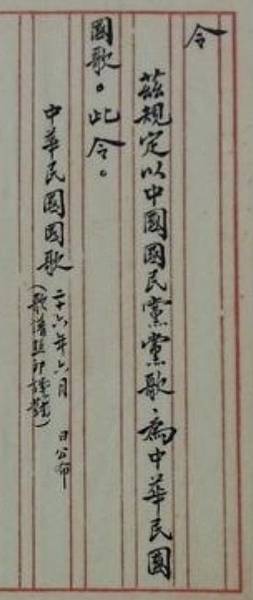 令
茲規定以中國國民黨黨歌,為中華民國
國歌。此令。
中華民國國歌 二十六年六月 日公布
(歌譜照印證葑)